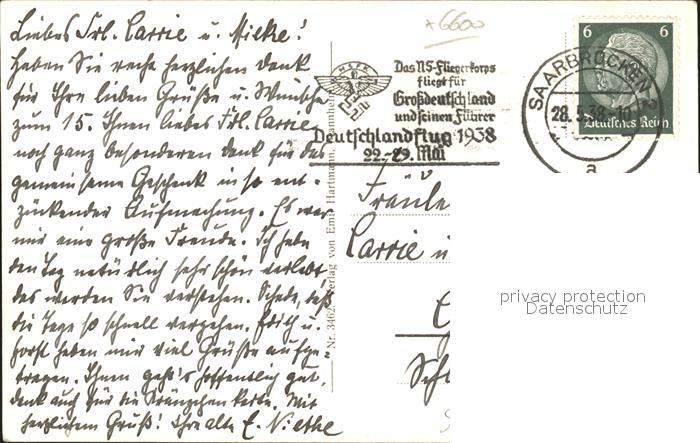 Liebes Frl. Carrie u. Mieke!
Haben Sie recht herzlichen Dank
für Ihre lieben Grüße u. Wünsche
zum 15. Ihnen liebes Frl. Carrie
noch ganz besonderen Dank für das
gemeinsame Geschenk in so ent-
zückender Aufmachung. Es war
mir eine große Freude. Ich habe
den Tag natürlich sehr schön verlebt
das werden Sie verstehen. Schade, daß
die Tage so schnell vergehen. Edith u.
Horst haben mir viel Grüße aufge-
tragen. Ihnen geht's hoffentlich gut,
denk auch für die Kränzchen Karte. Mit
herzlichem Gruß! Ihre alte E. Niethe
6600
N.S.F.K.
Das NS-Fliegerkorps
fliegt für
Großdeutschland
und seinen Führer
Deutschlandflug 1938
22.-29. Mai
SAARBRÜCKEN 2
28.5.38.
a
6 6
Deutsches Reich
Nr. 3462 Verlag von Emil Hartmann, Mannheim
Fräule
Carrie u
privacy protection
Datenschutz